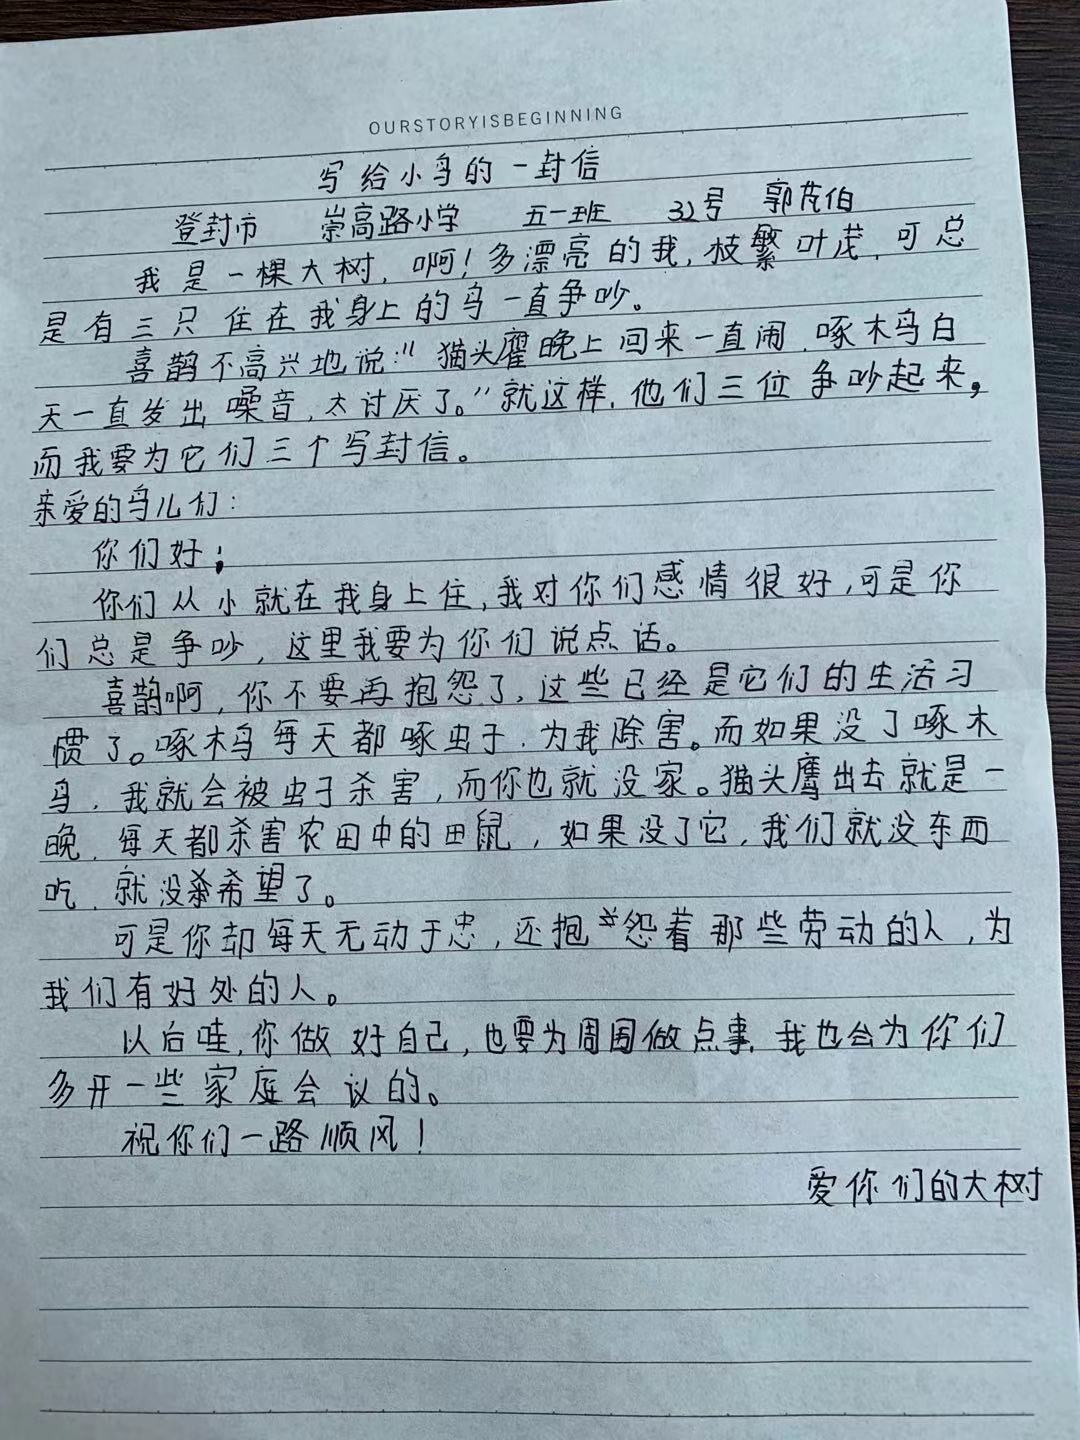 OURSTORYISBEGINNING
写给小鸟的一封信
登封市 崇高路小学 五一班 32号 郭茂伯
我是一棵大树，啊！多漂亮的我，枝繁叶茂，可总
是有三只住在我身上的鸟一直争吵。
喜鹊不高兴地说：“猫头鹰晚上回来一直闹，啄木鸟白
天一直发出噪音，太讨厌了。”就这样，他们三位争吵起来，
而我要为它们三个写封信。
亲爱的鸟儿们：
你们好；
你们从小就在我身上住，我对你们感情很好，可是你
们总是争吵，这里我要为你们说点话。
喜鹊啊，你不要再抱怨了，这些已经是它们的生活习
惯了。啄木鸟每天都啄虫子，为我除害。而如果没了啄木
鸟，我就会被虫子杀害，而你也就没家。猫头鹰出去就是一
晚，每天都杀害农田中的田鼠，如果没了它，我们就没东西
吃，就没希望了。
可是你却每天无动于忠，还抱怨着那些劳动的人，为
我们有好处的人。
以后哇，你做好自己，也要为周围做点事，我也会为你们
多开一些家庭会议的。
祝你们一路顺风！
爱你们的大树